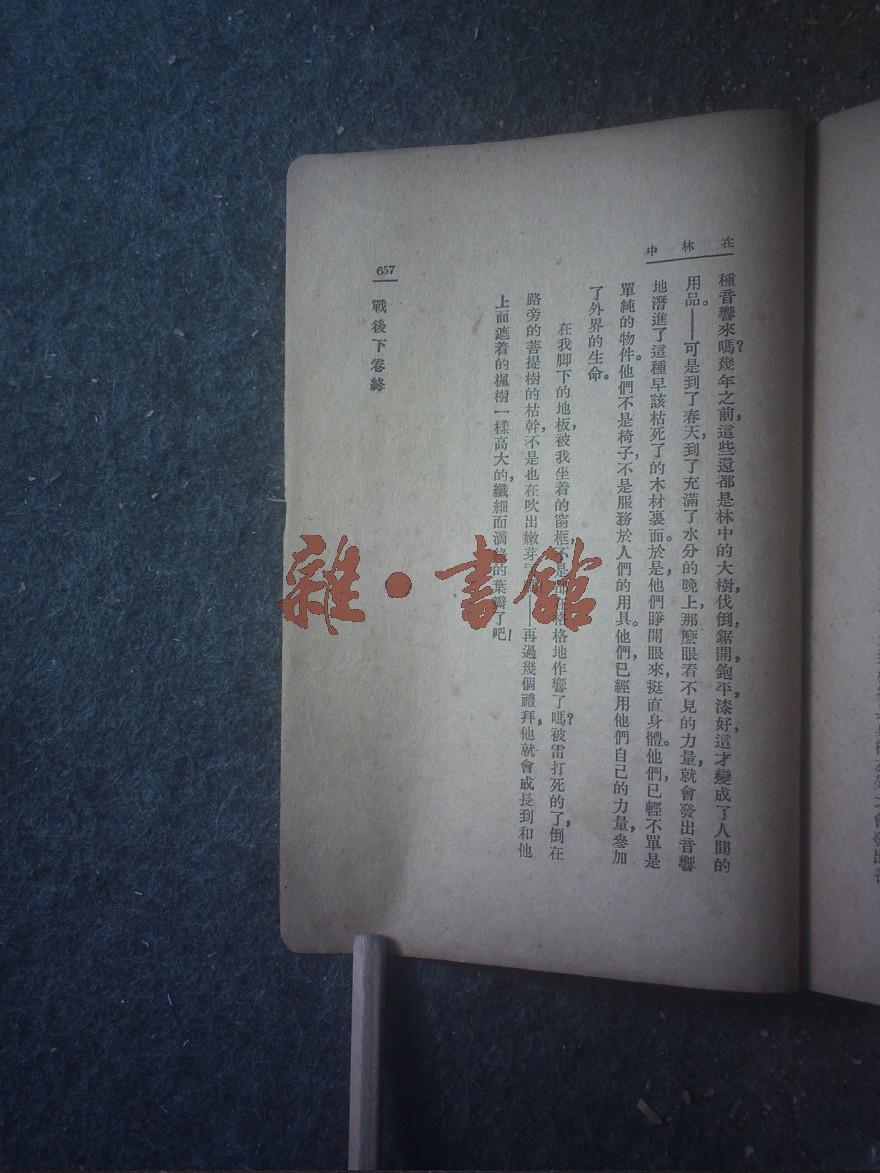 在林中
種音響來嗎?幾年之前,這些還都是林中的大樹,伐倒,鋸開,鉋平,漆好,這才變成了人間的
用品。——可是到了春天,到了充滿了水分的晚上,那麼眼看不見的力量,就會發出音響
地潛進了這種早該枯死了的木材裏面。於是,他們睜開眼來,挺直身體。他們,已輕不單是
單純的物件。他們不是椅子,不是服務於人們的用具。他們,已經用他們自己的力量,參加
了外界的生命。
在我脚下的地板,被我坐着的窗框,不是都在格格地作響了嗎?被雷打死的了,倒在
路旁的菩提樹的枯幹,不是也在吹出嫩芽 ——再過幾個禮拜,他就會成長到和他
上面遮着的楓樹一樣高大的,纖細而滴綠的葉瓣了吧!
657
戰後下卷終
雜·書館